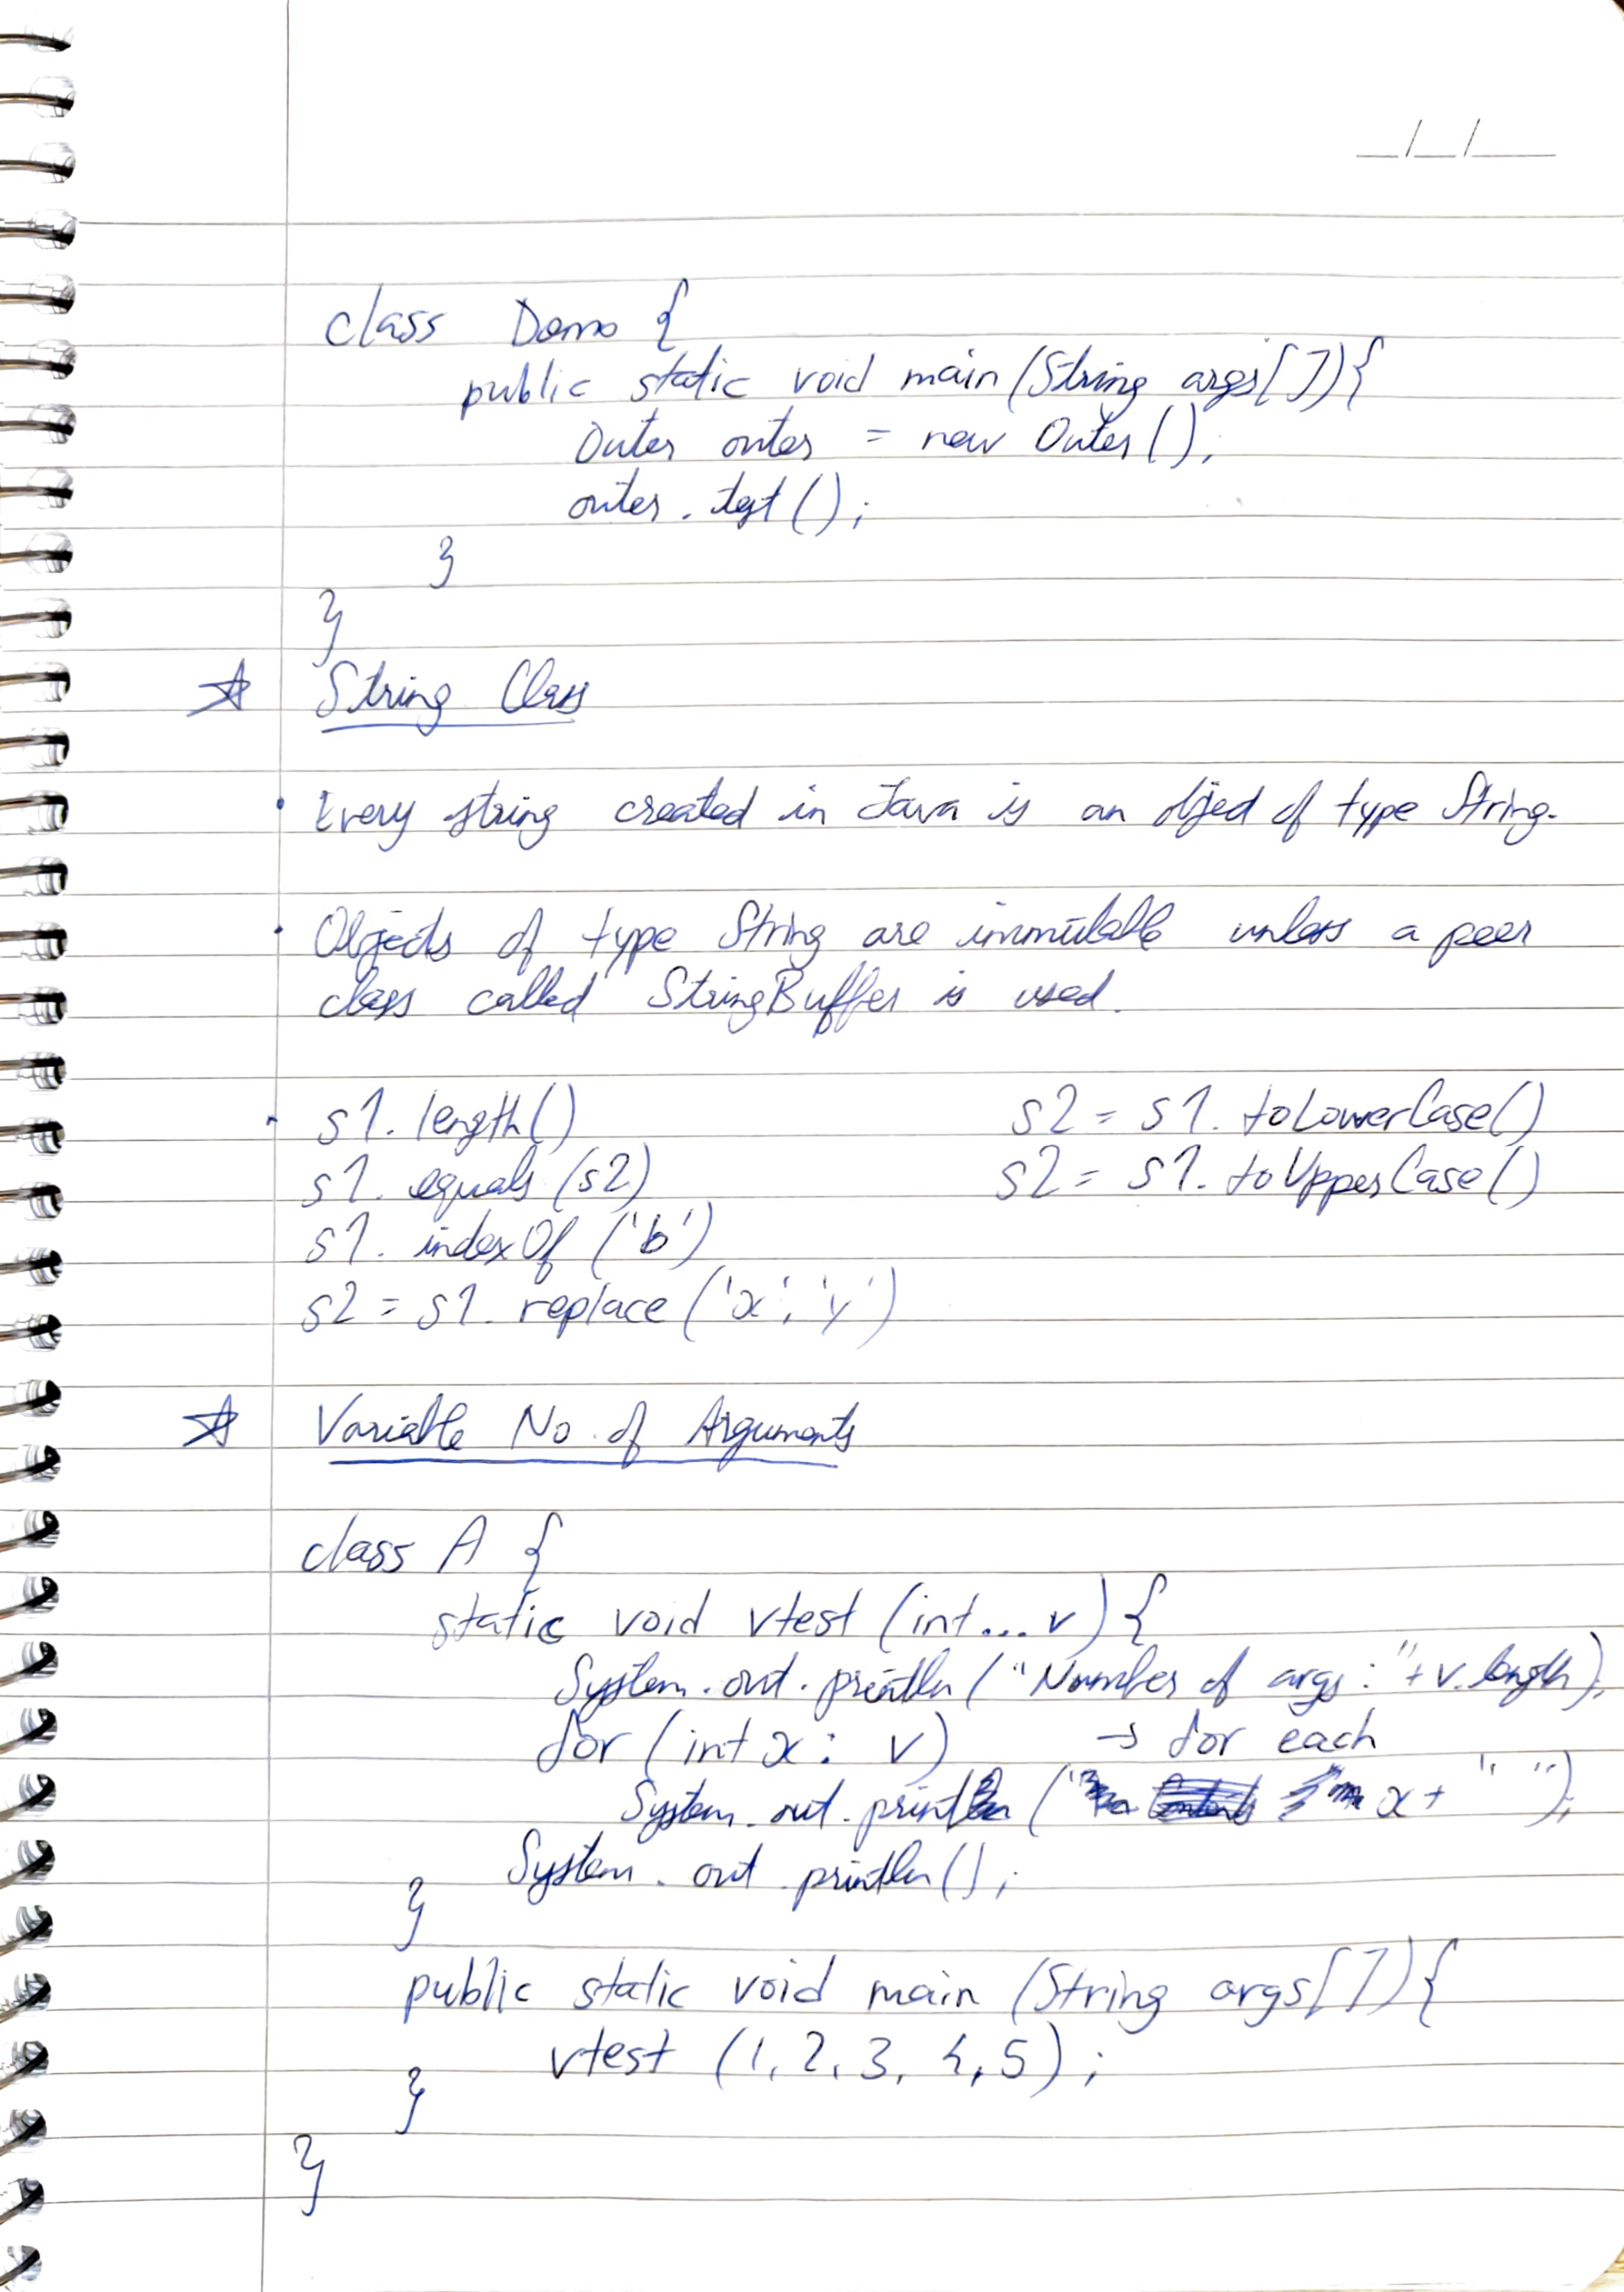 __/__/____
class Demo {
public static void main (String args[]){
Outer outer = new Outer();
outer.test();
}
}
☆ String Class
• Every string created in Java is an object of type String.
• Objects of type String are immutable unless a peer
class called StringBuffer is used.
• s1.length() s2 = s1.toLowerCase()
s1.equals(s2) s2 = s1.toUpperCase()
s1.indexOf('b')
s2 = s1.replace('x','y')
☆ Variable No. of Arguments
class A {
static void vtest (int...v){
System.out.println("Number of args:"+v.length);
for (int x: v) → for each
System.out.print( x+ " ");
System.out.println();
}
public static void main (String args[]){
vtest (1,2,3,4,5);
}
}